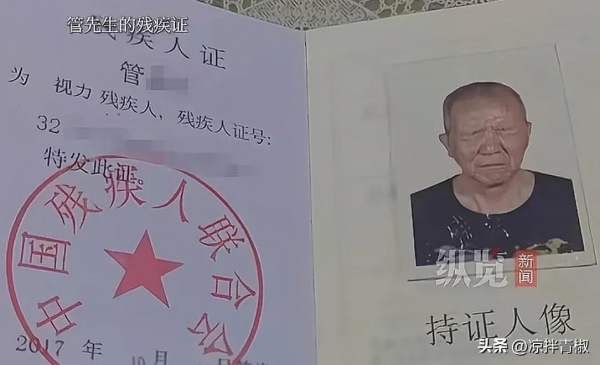 管先生的残疾证
残疾人证
管
为 视力残疾人，残疾人证号：
32
特发此证。
中国残疾人联合会
2017 年 10 月
纵览新闻
持证人像
头条 @凉拌青椒